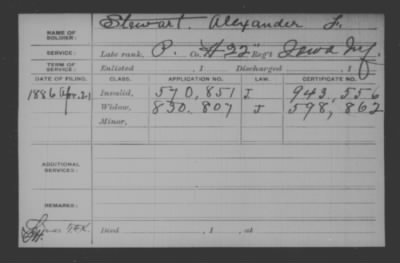 NAME OF SOLDIER: Stewart, Alexander F.
SERVICE: Late rank, P. Co. H 22 Reg't Iowa Inf
TERM OF SERVICE: Enlisted , 1 Discharged , 1
DATE OF FILING. CLASS. APPLICATION NO. LAW. CERTIFICATE NO.
1886 Apr. 21 Invalid, 570,851 J 943,556
Widow, 830,807 J 598,862
Minor,
ADDITIONAL SERVICES:
REMARKS:
Died , 1 , at